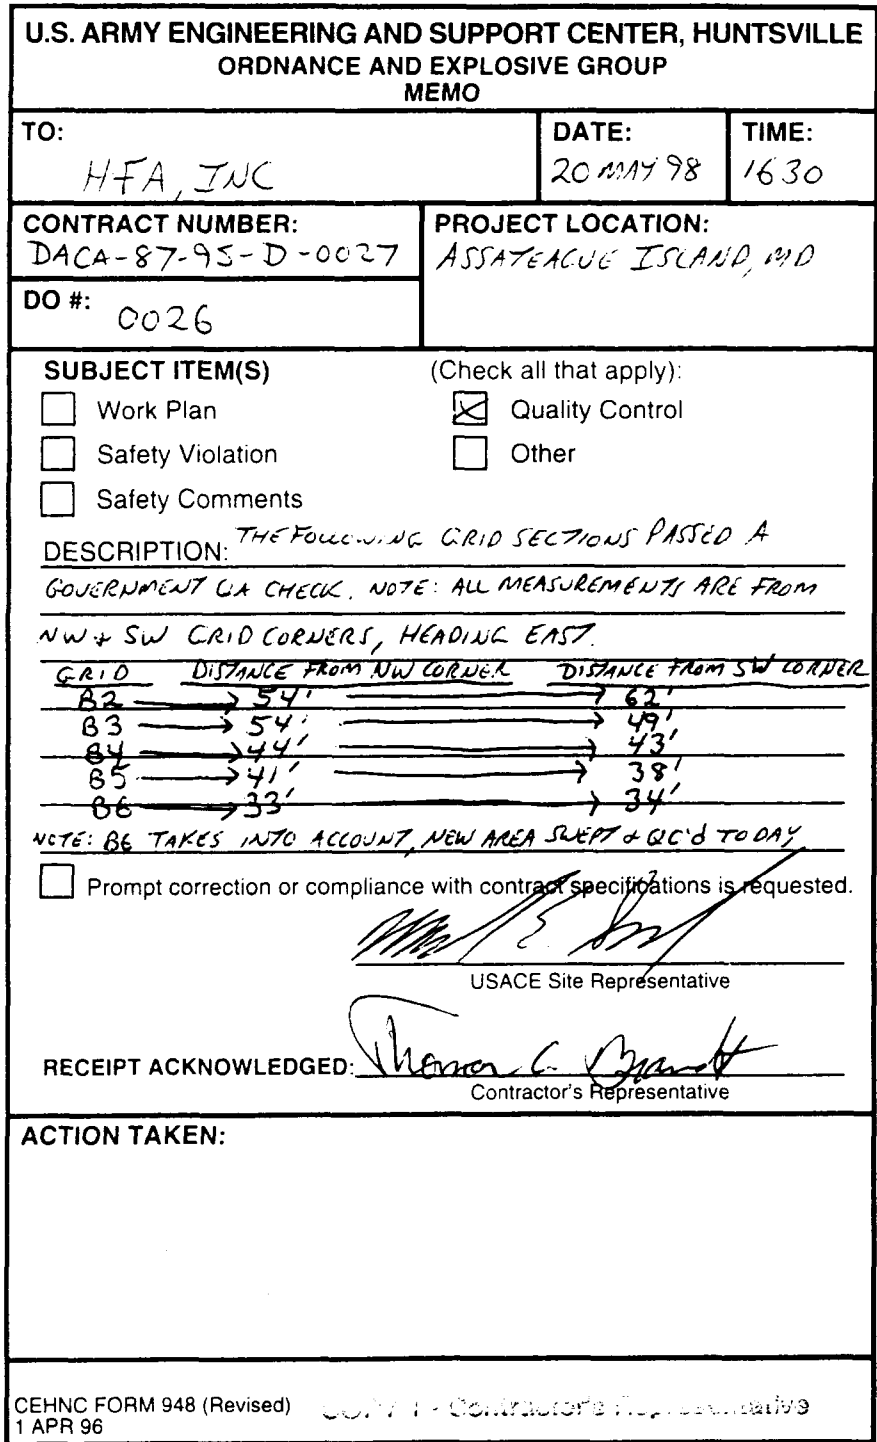 U.S. ARMY ENGINEERING AND SUPPORT CENTER, HUNTSVILLE
ORDNANCE AND EXPLOSIVE GROUP
MEMO
TO:
HFA, INC
DATE:
20 MAY 98
TIME:
1630
CONTRACT NUMBER:
DACA-87-95-D-0027
PROJECT LOCATION:
ASSATEAGUE ISLAND, MD
DO #:
0026
SUBJECT ITEM(S) (Check all that apply):
Work Plan Quality Control
Safety Violation Other
Safety Comments
DESCRIPTION: THE FOLLOWING GRID SECTIONS PASSED A
GOVERNMENT QA CHECK. NOTE: ALL MEASUREMENTS ARE FROM
NW & SW GRID CORNERS, HEADING EAST.
GRID DISTANCE FROM NW CORNER DISTANCE FROM SW CORNER
B2 → 54' → 62'
B3 → 54' → 49'
B4 → 44' → 43'
B5 → 41' → 38'
B6 → 33' → 34'
NOTE: B6 TAKES INTO ACCOUNT, NEW AREA SWEPT & QC'd TODAY
Prompt correction or compliance with contract specifications is requested.
USACE Site Representative
RECEIPT ACKNOWLEDGED: Thomas C. Brandt
Contractor's Representative
ACTION TAKEN:
CEHNC FORM 948 (Revised)
1 APR 96
COPY 1 - Contractor's Representative